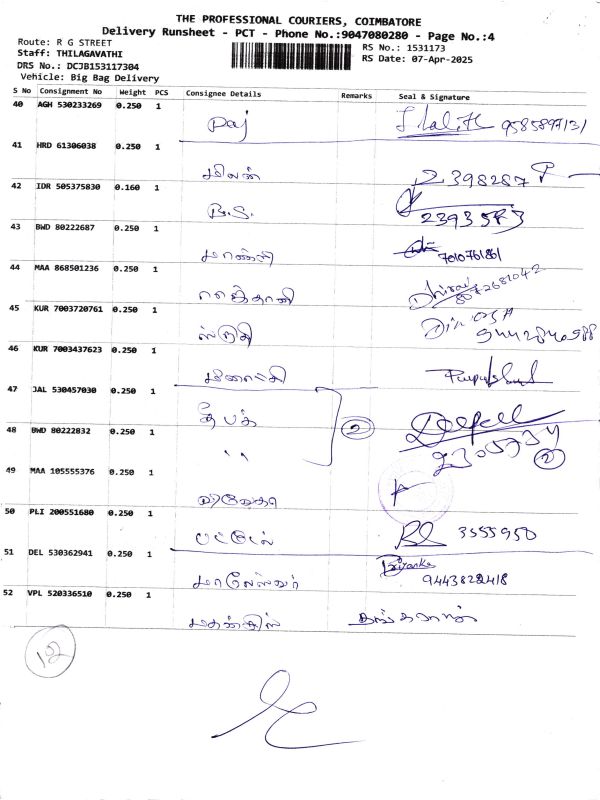 THE PROFESSIONAL COURIERS, COIMBATORE
Delivery Runsheet - PCT - Phone No.:9047080280 - Page No.:4
Route: R G STREET
RS No.: 1531173
Staff: THILAGAVATHI
RS Date: 07-Apr-2025
DRS No.: DCJB153117304
Vehicle: Big Bag Delivery
S No Consignment No Weight PCS Consignee Details Remarks Seal & Signature
40 AGH 530233269 0.250 1
Raj 9585897131
41 HRD 61306038 0.250 1
மிலன் 2398287
42 IDR 505375830 0.160 1
B.S. 2393583
43 BWD 80222687 0.250 1
7010761861
44 MAA 868501236 0.250 1
Dhiraj 8072681042
45 KUR 7003720761 0.250 1
ஸ்ருதி 9442840988
46 KUR 7003437623 0.250 1
மீனாட்சி
47 JAL 530457030 0.250 1
தீபக் 2 Deepak
48 BWD 80222832 0.250 1
,, 2
49 MAA 105555376 0.250 1
50 PLI 200551680 0.250 1
பட்டேல் 3555950
51 DEL 530362941 0.250 1
Priyanka
மாலேஸ்வர் 9443822418
52 VPL 520336510 0.250 1